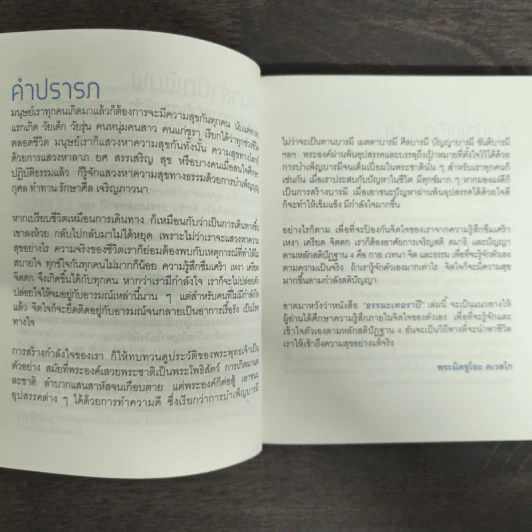 คำปรารภ
มนุษย์เราทุกคนเกิดมาแล้วก็ต้องการจะมีความสุขกันทุกคน นับแต่ทารก
แรกเกิด วัยเด็ก วัยรุ่น คนหนุ่มคนสาว คนแก่ชรา เรียกได้ว่าทุกช่วงชีวิต
ตลอดชีวิต มนุษย์เราก็แสวงหาความสุขกันทั้งนั้น ความสุขทางโลกก็
ด้วยการแสวงหาลาภ ยศ สรรเสริญ สุข หรือบางคนเมื่อสนใจศึกษา
ปฏิบัติธรรมแล้ว ก็รู้จักแสวงหาความสุขทางธรรมด้วยการบำเพ็ญบุญ
กุศล ทำทาน รักษาศีล เจริญภาวนา
หากเปรียบชีวิตเหมือนการเดินทาง ก็เหมือนกับว่าเป็นการเดินทางขึ้น
เขาลงห้วย กลับไปกลับมาไม่ได้หยุด เพราะไม่ว่าเราจะแสวงหาความ
สุขอย่างไร ความจริงของชีวิตเราก็ย่อมต้องพบกับเหตุการณ์ที่ทำให้ไม่
สบายใจ ทุกข์ใจกันทุกคนไม่มากก็น้อย ความรู้สึกซึมเศร้า เหงา เครียด
จิตตก จึงเกิดขึ้นได้กับทุกคน หากว่าเรามีกำลังใจ เราก็จะไม่ปล่อยตัว
ปล่อยใจให้จมอยู่กับอารมณ์เหล่านี้นาน ๆ แต่สำหรับคนที่ไม่มีกำลังใจ
แล้ว จิตใจก็จะยึดติดอยู่กับอารมณ์จนกลายเป็นอาการเรื้อรัง เป็นโรค
ทางใจ
การสร้างกำลังใจของเรา ก็ให้ทบทวนดูประวัติของพระพุทธเจ้าเป็น
ตัวอย่าง สมัยที่พระองค์เสวยพระชาติเป็นพระโพธิสัตว์ การเกิดมาแต่
ละชาติ ลำบากแสนสาหัสจนเกือบตาย แต่พระองค์ก็ต่อสู้ เอาชนะ
อุปสรรคต่าง ๆ ได้ด้วยการทำความดี ซึ่งเรียกว่าการบำเพ็ญบารมี
ไม่ว่าจะเป็นทานบารมี เมตตาบารมี ศีลบารมี ปัญญาบารมี ขันติบารมี
ฯลฯ พระองค์ผ่านพ้นอุปสรรคและบรรลุถึงเป้าหมายที่ตั้งใจไว้ได้ด้วย
การบำเพ็ญบารมีจนเต็มเปี่ยมในพระชาตินั้น ๆ สำหรับเราทุกคนก็
เช่นกัน เมื่อเราประสบกับปัญหาในชีวิต มีทุกข์มาก ๆ หากมองแง่ดีก็
เป็นการสร้างบารมี เมื่อเอาชนะปัญหาผ่านพ้นอุปสรรคได้ด้วยใจดี
ก็จะทำให้เข้มแข็ง มีกำลังใจมากขึ้น
อย่างไรก็ตาม เพื่อที่จะป้องกันจิตใจของเราจากความรู้สึกซึมเศร้า
เหงา เครียด จิตตก เราก็ต้องอาศัยการเจริญสติ สมาธิ และปัญญา
ตามหลักสติปัฏฐาน 4 คือ กาย เวทนา จิต และธรรม เพื่อที่จะรู้จักตัวเอง
ตามความเป็นจริง ถ้าเรารู้จักตัวเองมากเท่าไร จิตใจก็จะมีความสุข
มากขึ้นตามกำลังสติปัญญา
อาตมาหวังว่าหนังสือ "ธรรมะเพลราบี" เล่มนี้ จะเป็นแนวทางให้
ผู้อ่านได้ศึกษาความรู้สึกภายในจิตใจของตัวเอง เพื่อที่จะรู้จักและ
เข้าใจตัวเองตามหลักสติปัฏฐาน 4 อันจะเป็นวิถีทางที่จะนำพาชีวิต
เราให้เข้าถึงความสุขอย่างแท้จริง
พระมิตซูโอะ คเวสโก